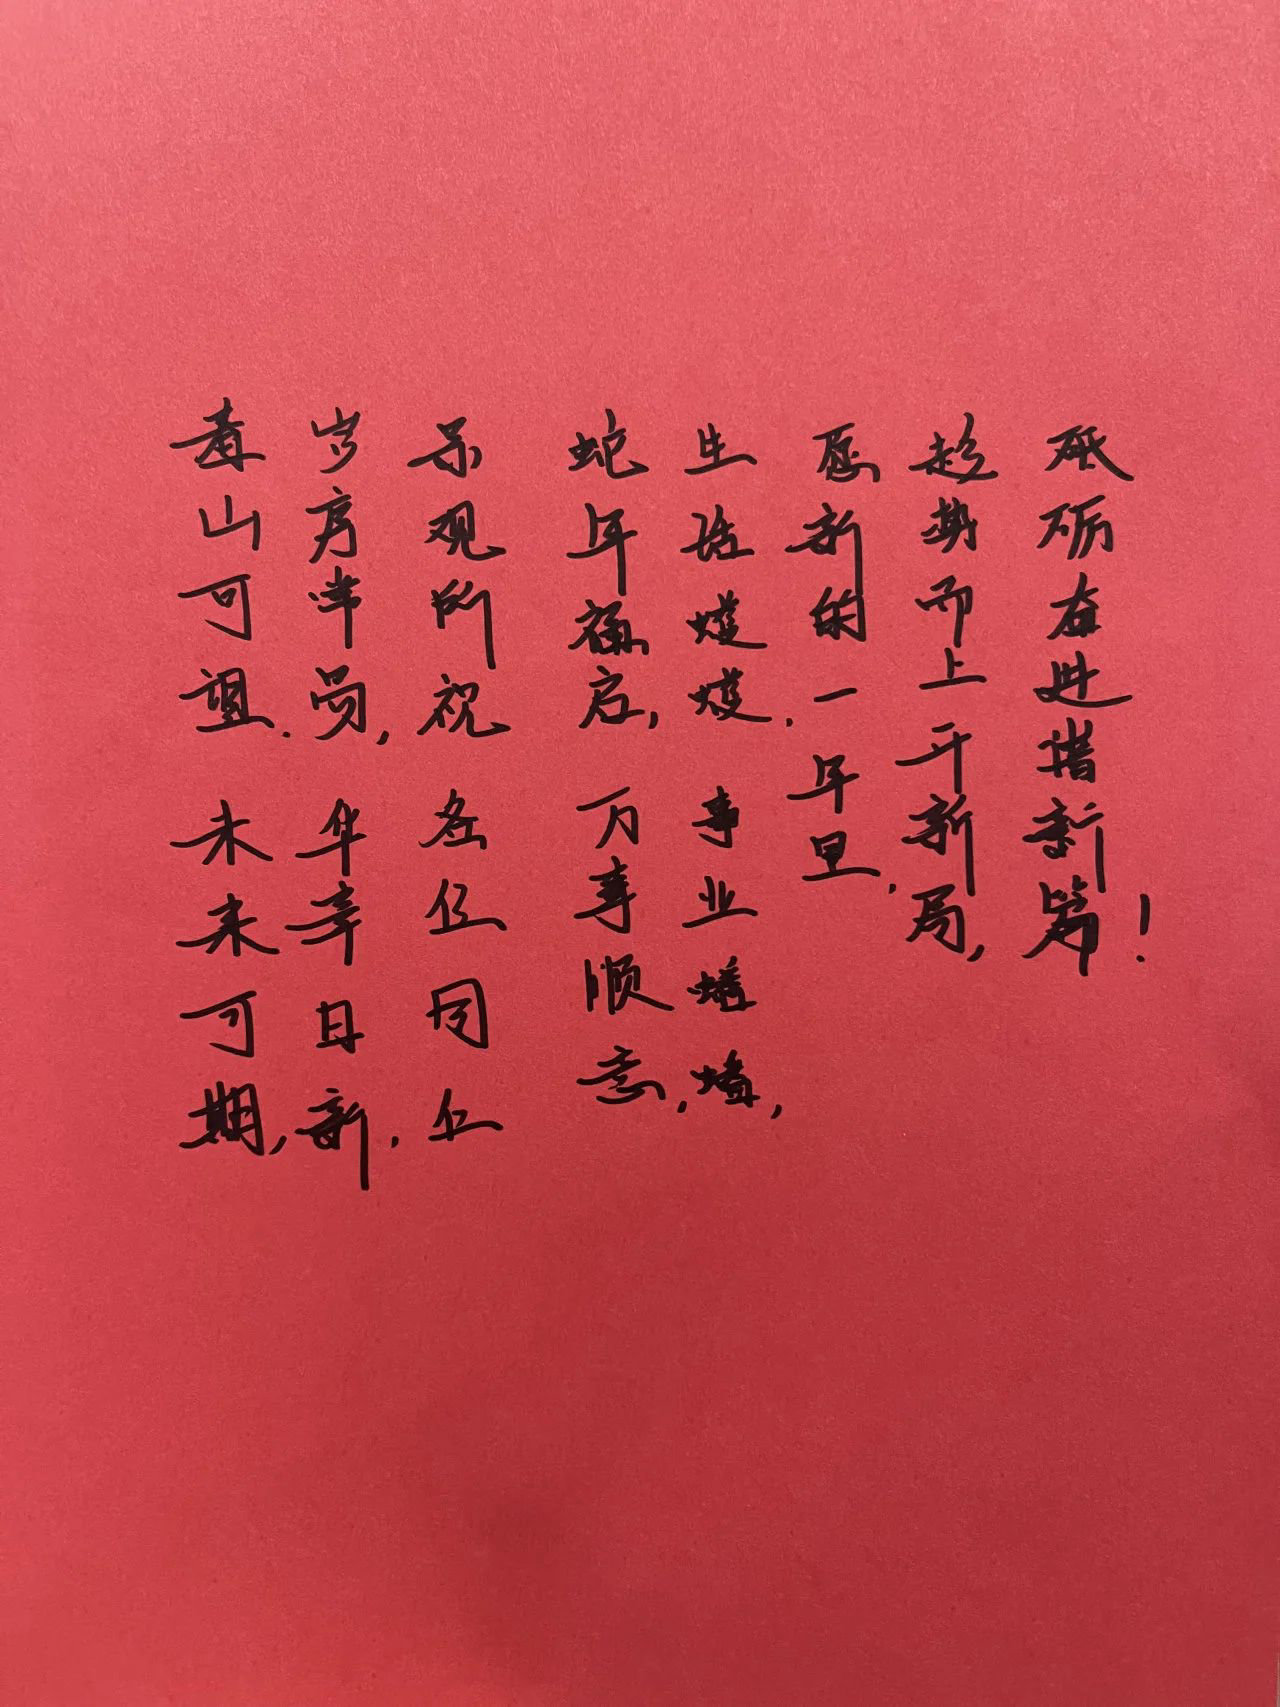 青山可望.未来可期,
岁序常易,华章日新.
乐观所祝各位同仁
蛇年福启,万事顺意.
生活熠熠.事业蟠蟠,
愿新的一年里,
趁势而上开新局,
砥砺奋进谱新篇!